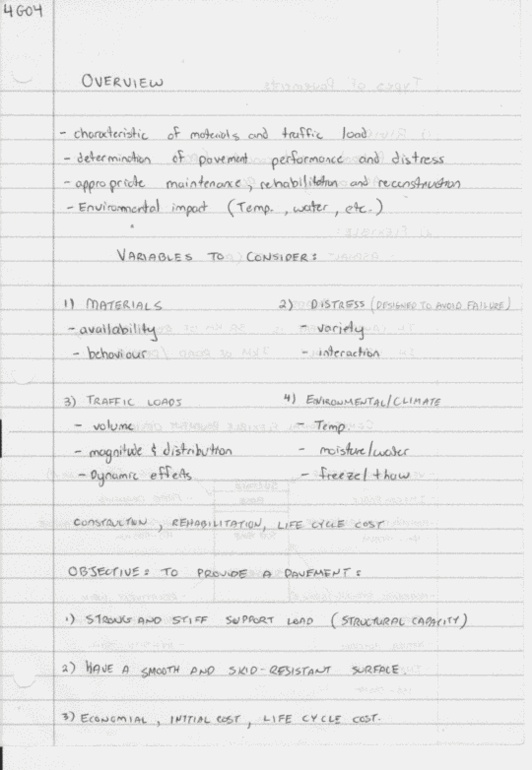 4G04
OVERVIEW
- characteristic of materials and traffic load
- determination of pavement performance and distress
- appropriate maintenance, rehabilitation and reconstruction
- Environmental impact (Temp., water, etc.)
VARIABLES TO CONSIDER:
1) MATERIALS
- availability
- behaviour
2) DISTRESS (DESIGNED TO AVOID FAILURE)
- variety
- interaction
3) TRAFFIC LOADS
- volume
- magnitude & distribution
- Dynamic effects
4) ENVIRONMENTAL/CLIMATE
- Temp.
- moisture/water
- freeze/thaw
CONSTRUCTION, REHABILITATION, LIFE CYCLE COST
OBJECTIVE: TO PROVIDE A PAVEMENT:
1) STRONG AND STIFF SUPPORT LOAD (STRUCTURAL CAPACITY)
2) HAVE A SMOOTH AND SKID-RESISTANT SURFACE
3) ECONOMIAL, INITIAL COST, LIFE CYCLE COST.